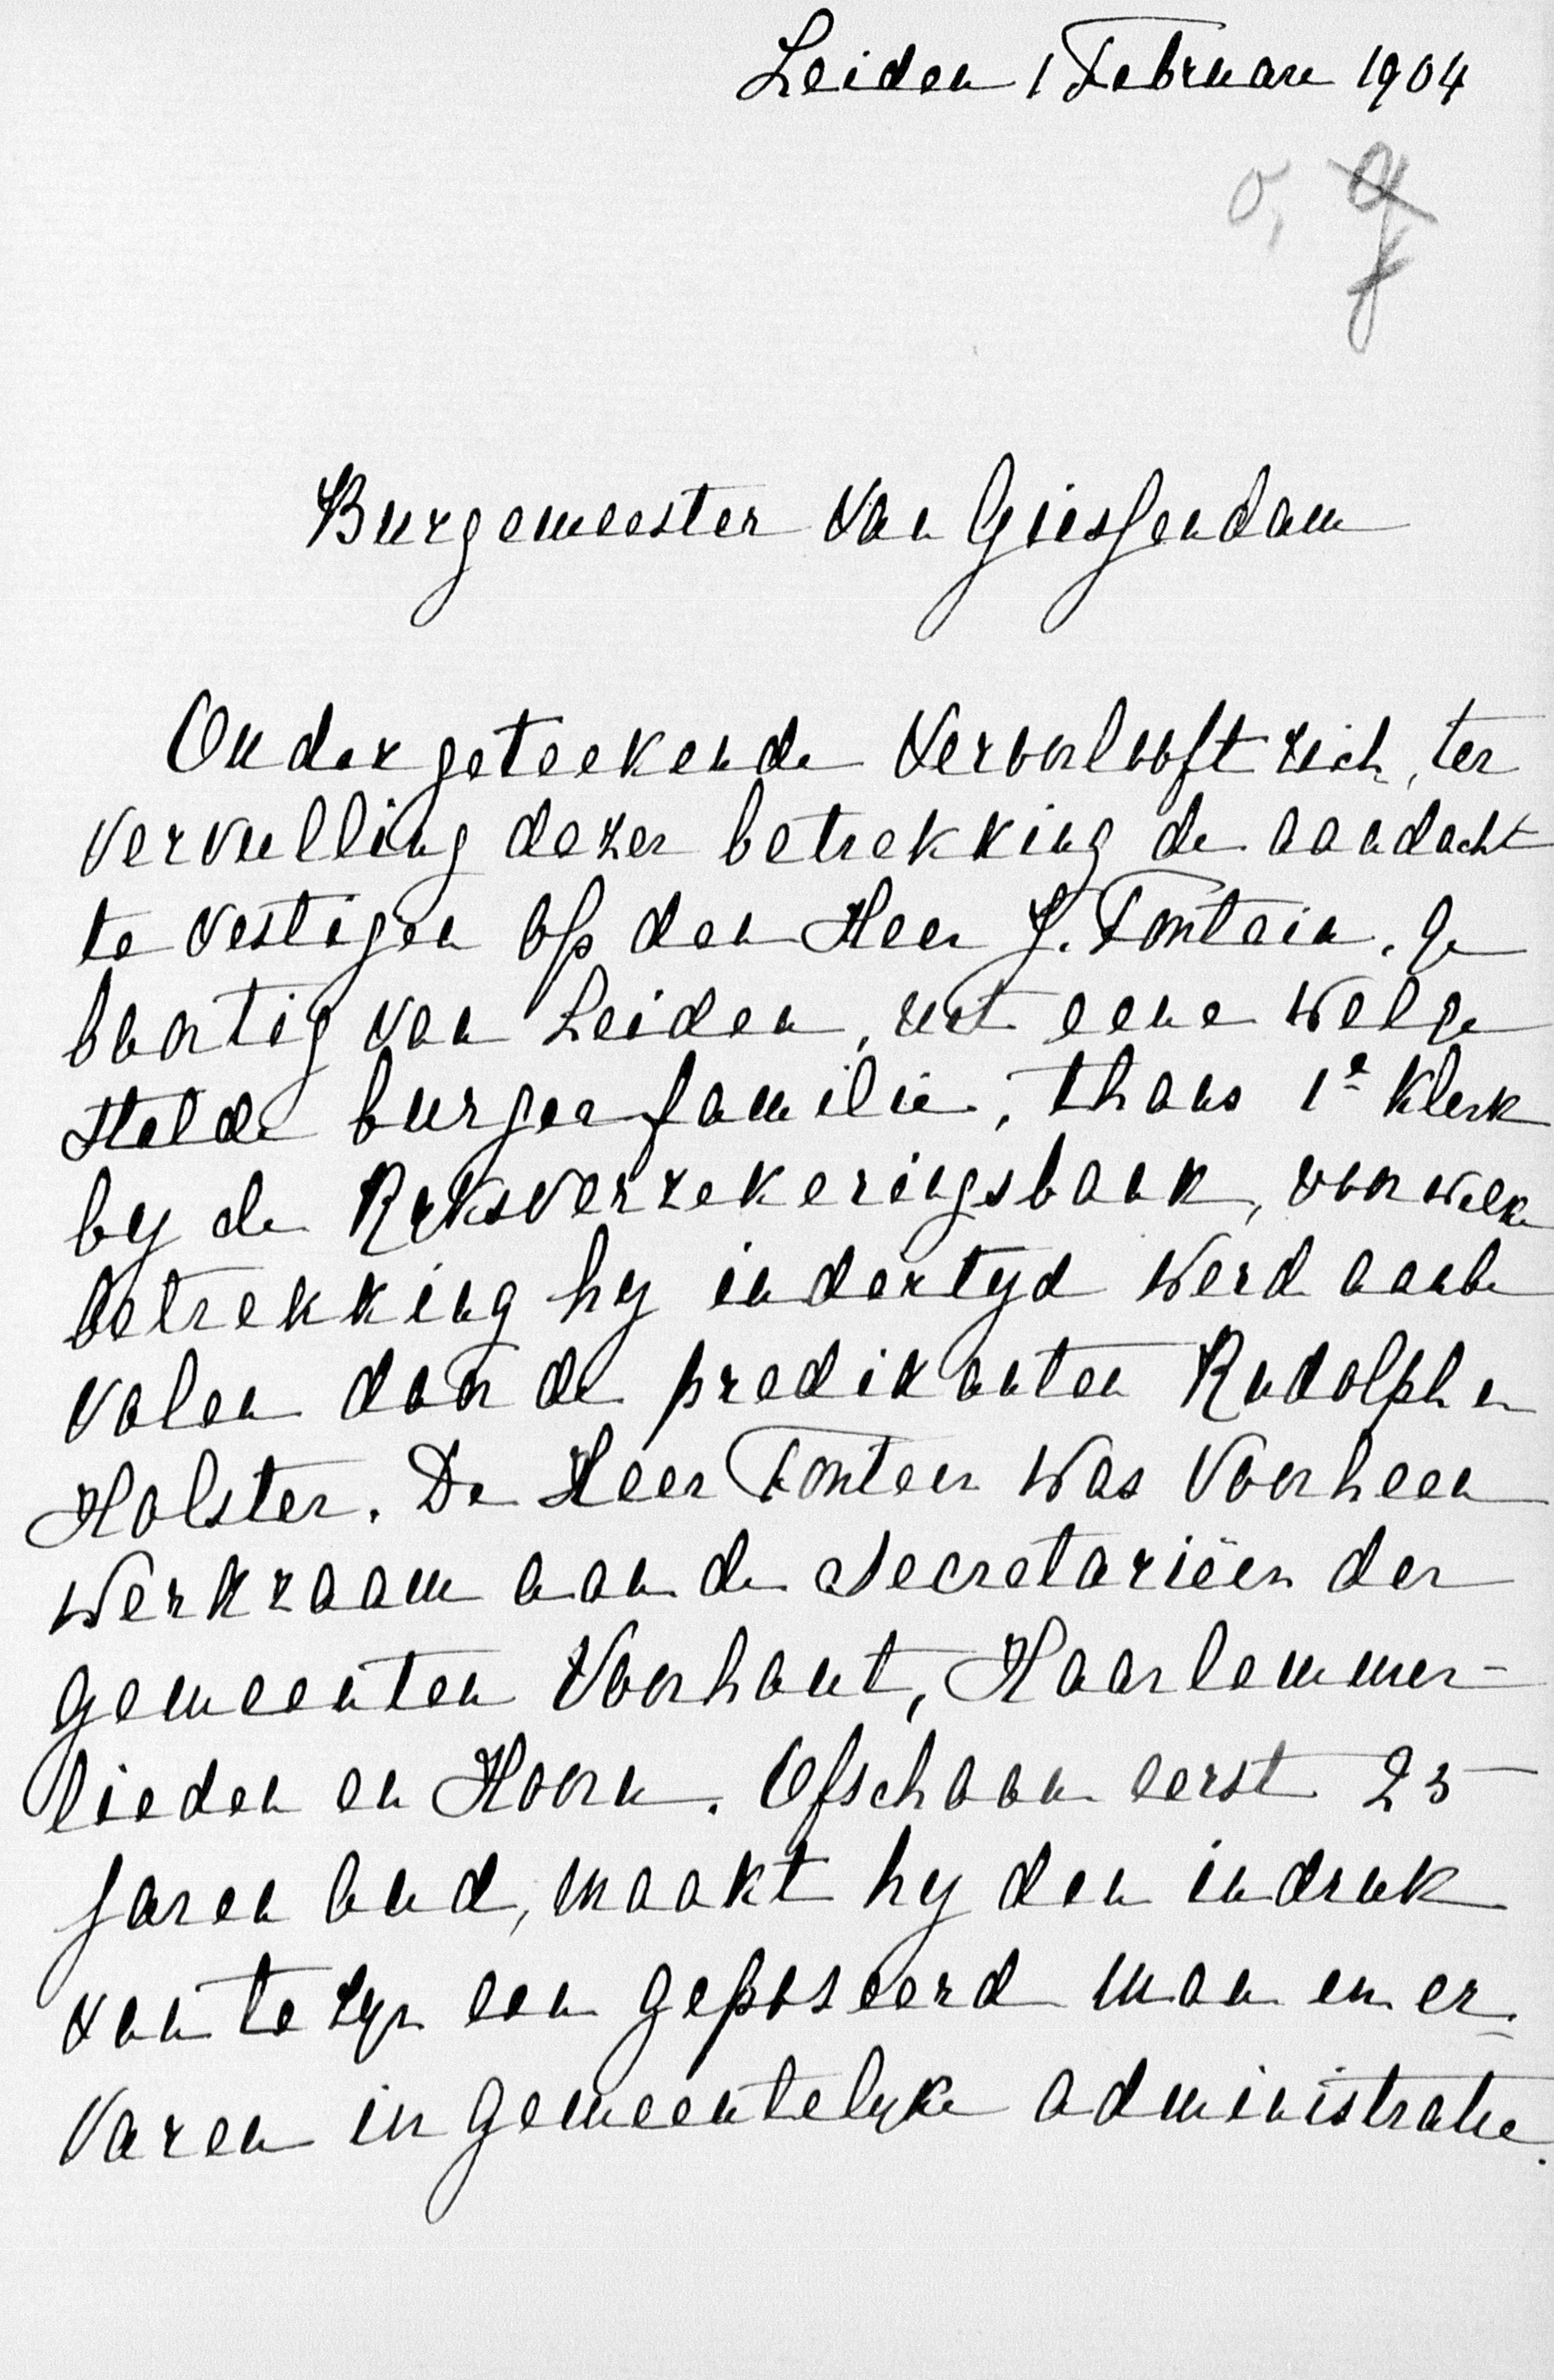 Leiden 1 Februari 1904
Burgemeester van Giessendam
Ondergeteekende veroorlooft zich, ter
vervulling dezer betrekking de aandacht
te vestigen op den Heer J. Fontein, ge
boortig van Leiden, uit eene welge
stelde burgerfamilie, thans 1e klerk
by de Ryksverzekeringsbank, voor welke
betrekking hy indertyd werd aanbe
volen door de predikanten Rudolph en
Holster. De Heer Fontein was voorheen
werkzaam aan de secretarieën der
gemeenten Voorhout, Haarlemmer-
lieden en Hoorn. Ofschoon eerst 25
jaren oud, maakt hy den indruk
van te zyn een geposeerd man en er-
varen in gemeentelyke administratie.